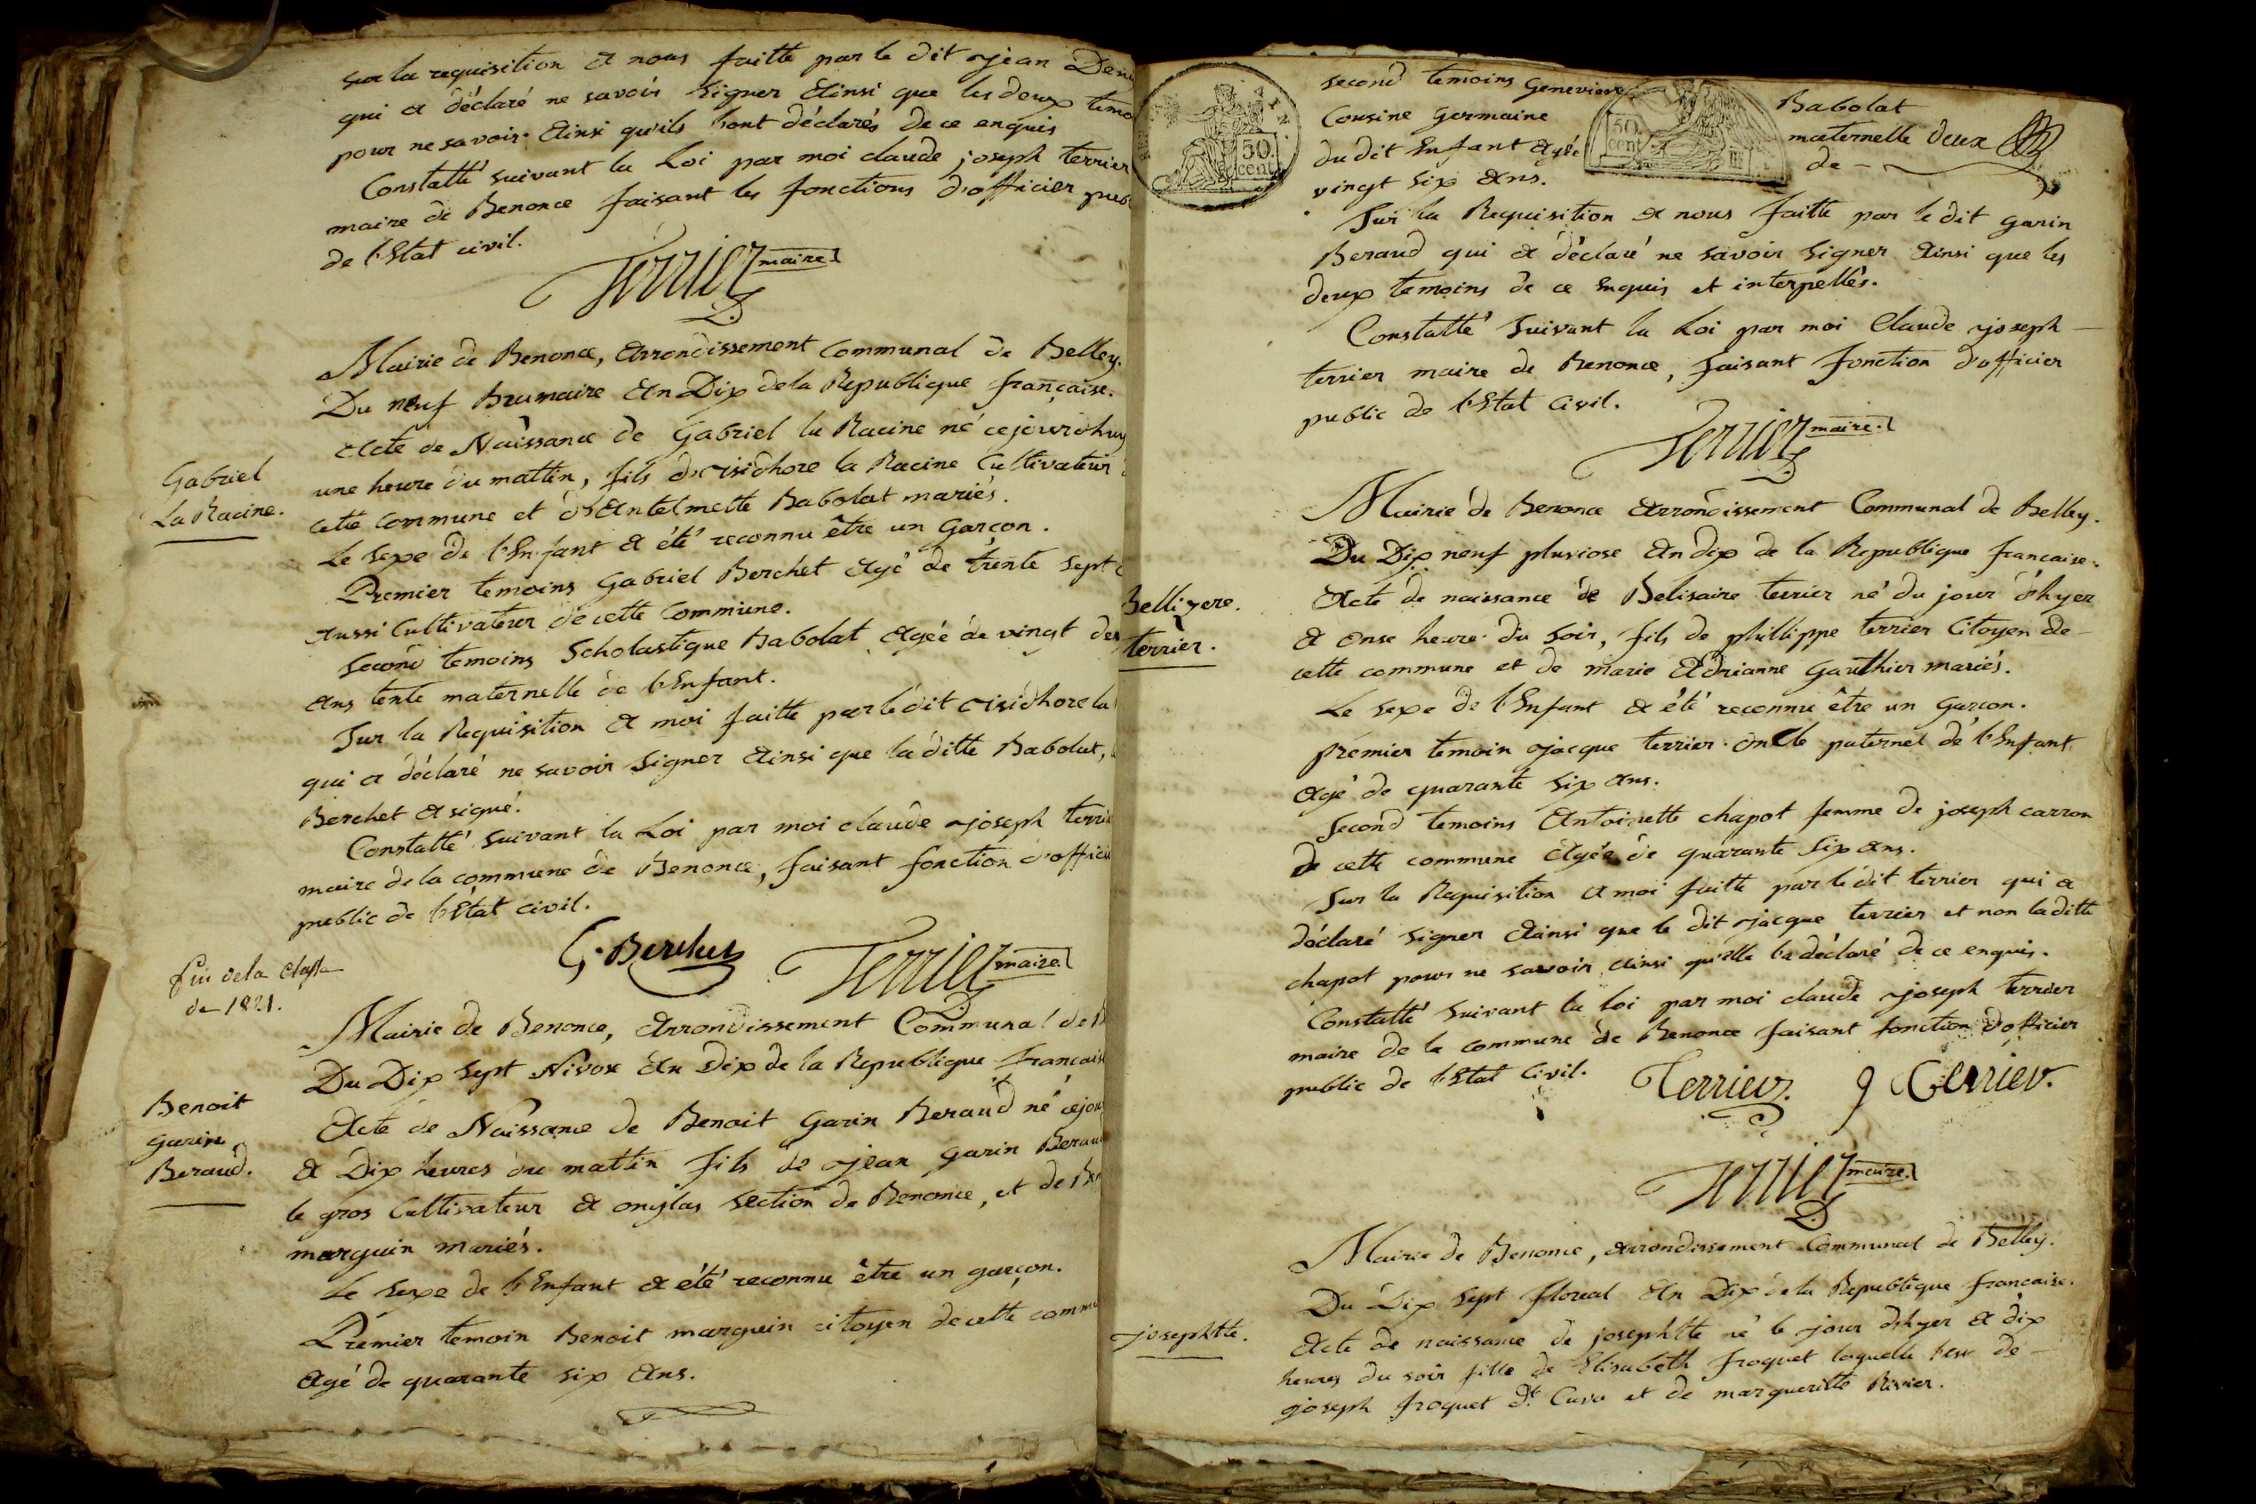 sur la requisition a nous faitte par le dit jean
qui a déclaré ne savoir signer ainsi que les deux temo
pour ne savoir ainsi qu'ils l'ont déclarés de ce enquis
Constatté suivant la Loi par moi claude joseph terrier
maire de Benonce faisant les fonctions d'officier pub
de l'Etat civil.
Terrier maire
Mairie de Benonce, arrondissement Communal de Belley.
Du neuf Brumaire an Dix de la Republique française.
Gabriel
La Racine.
acte de Naissance de Gabriel la Racine né cejourdhuy
une heure du mattin, fils de isidhore la Racine Cultivateur
cette commune et d'antelmette Babolat mariés.
Le sexe de l'Enfant a été reconnu être un Garçon.
Premier temoins Gabriel Berchet agé de trente sept
aussi Cultivateur de cette Commune.
Second temoins Scholastique Babolat agée de vingt
ans tente maternelle de l'Enfant.
Sur la Requisition a moi faitte par le dit isidhore la
qui a déclaré ne savoir signer ainsi que la ditte Babolat,
Berchet a signé.
Constatté suivant la Loi par moi claude joseph terrie
maire de la commune de Benonce, faisant fonction d'offici
public de l'Etat civil.
G. Berchet Terrier maire
fin de la classe
de 1821.
Mairie de Benonce, arrondissement Communal de
Du Dix sept Nivose an Dix de la Republique francaise
Benoit
garin
Beraud.
Acte de Naissance de Benoit garin Beraud né cejou
a Dix heures du mattin fils de jean garin Berau
le gros Cultivateur a onglas section de Benonce, et de
marguin mariés.
Le sexe de l'Enfant a été reconnu être un garçon.
Premier temoin Benoit marguin citoyen de cette commu
agé de quarante six ans.
second temoins Genevieve Babolat
Cousine germaine maternelle
du dit Enfant agée de
vingt six ans.
deux
50 cent
50 cent
Sur la Requisition a nous faitte par le dit garin
Beraud qui a déclaré ne savoir signer ainsi que les
deux temoins de ce enquis et interpellés.
Constatté suivant la Loi par moi Claude joseph
terrier maire de Benonce, faisant fonction d'officier
public de l'Etat Civil.
Terrier maire.
Mairie de Benonce arrondissement Communal de Belley.
Du Dix neuf pluviose an dix de la Republique francaise.
Bellizere.
terrier.
Acte de naissance de Belisaire terrier né du jour d'hyer
a onse heure du soir, fils de phillippe terrier Citoyen de
cette commune et de marie adrianne Gauthier mariés.
Le sexe de l'Enfant a été reconnu être un garcon.
premier temoin jacque terrier oncle paternel de l'Enfant
agé de quarante six ans.
Second temoins antoinette chapot femme de joseph carron
de cette commune agée de quarante six ans.
Sur la Requisition a moi faitte par le dit terrier qui a
déclaré signer ainsi que le dit jacque terrier et non la ditte
chapot pour ne savoir ainsi qu'elle l'a déclaré de ce enquis.
Constatté suivant la loi par moi claude joseph terrier
maire de la commune de Benonce faisant fonction d'officier
public de l'Etat Civil.
Terrier. J Terrier.
Terrier maire.
Mairie de Benonce, arrondissement Communal de Belley.
Du Dix sept floreal an Dix de la Republique francaise.
josephtte.
acte de naissance de josephtte né le jour d'hyer a dix
heures du soir fille de Elisabeth froquet laquelle de
joseph froquet dt Cuva et de margueritte Rivier.